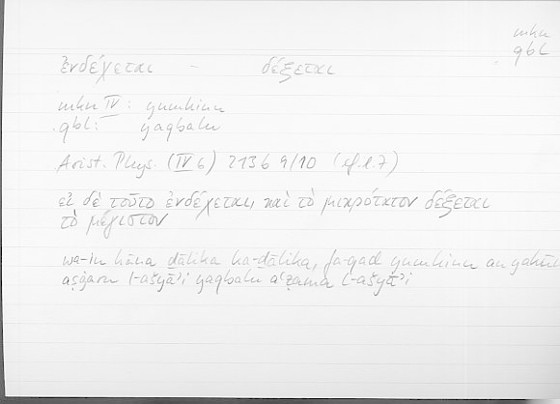 mkn
qbl
ἐνδέχεται – δέξεται
mkn IV: yumkinu
qbl: yaqbalu
Arist. Phys. (IV 6) 213b 9/10 (cf. l. 7)
εἰ δὲ τοῦτο ἐνδέχεται, καὶ τὸ μικρότατον δέξεται
τὸ μέγιστον
wa-in kāna ḏālika ka-ḏālika, fa-qad yumkinu an yakūn
aṣġaru l-ašyāʾi yaqbalu aʿẓama l-ašyāʾi